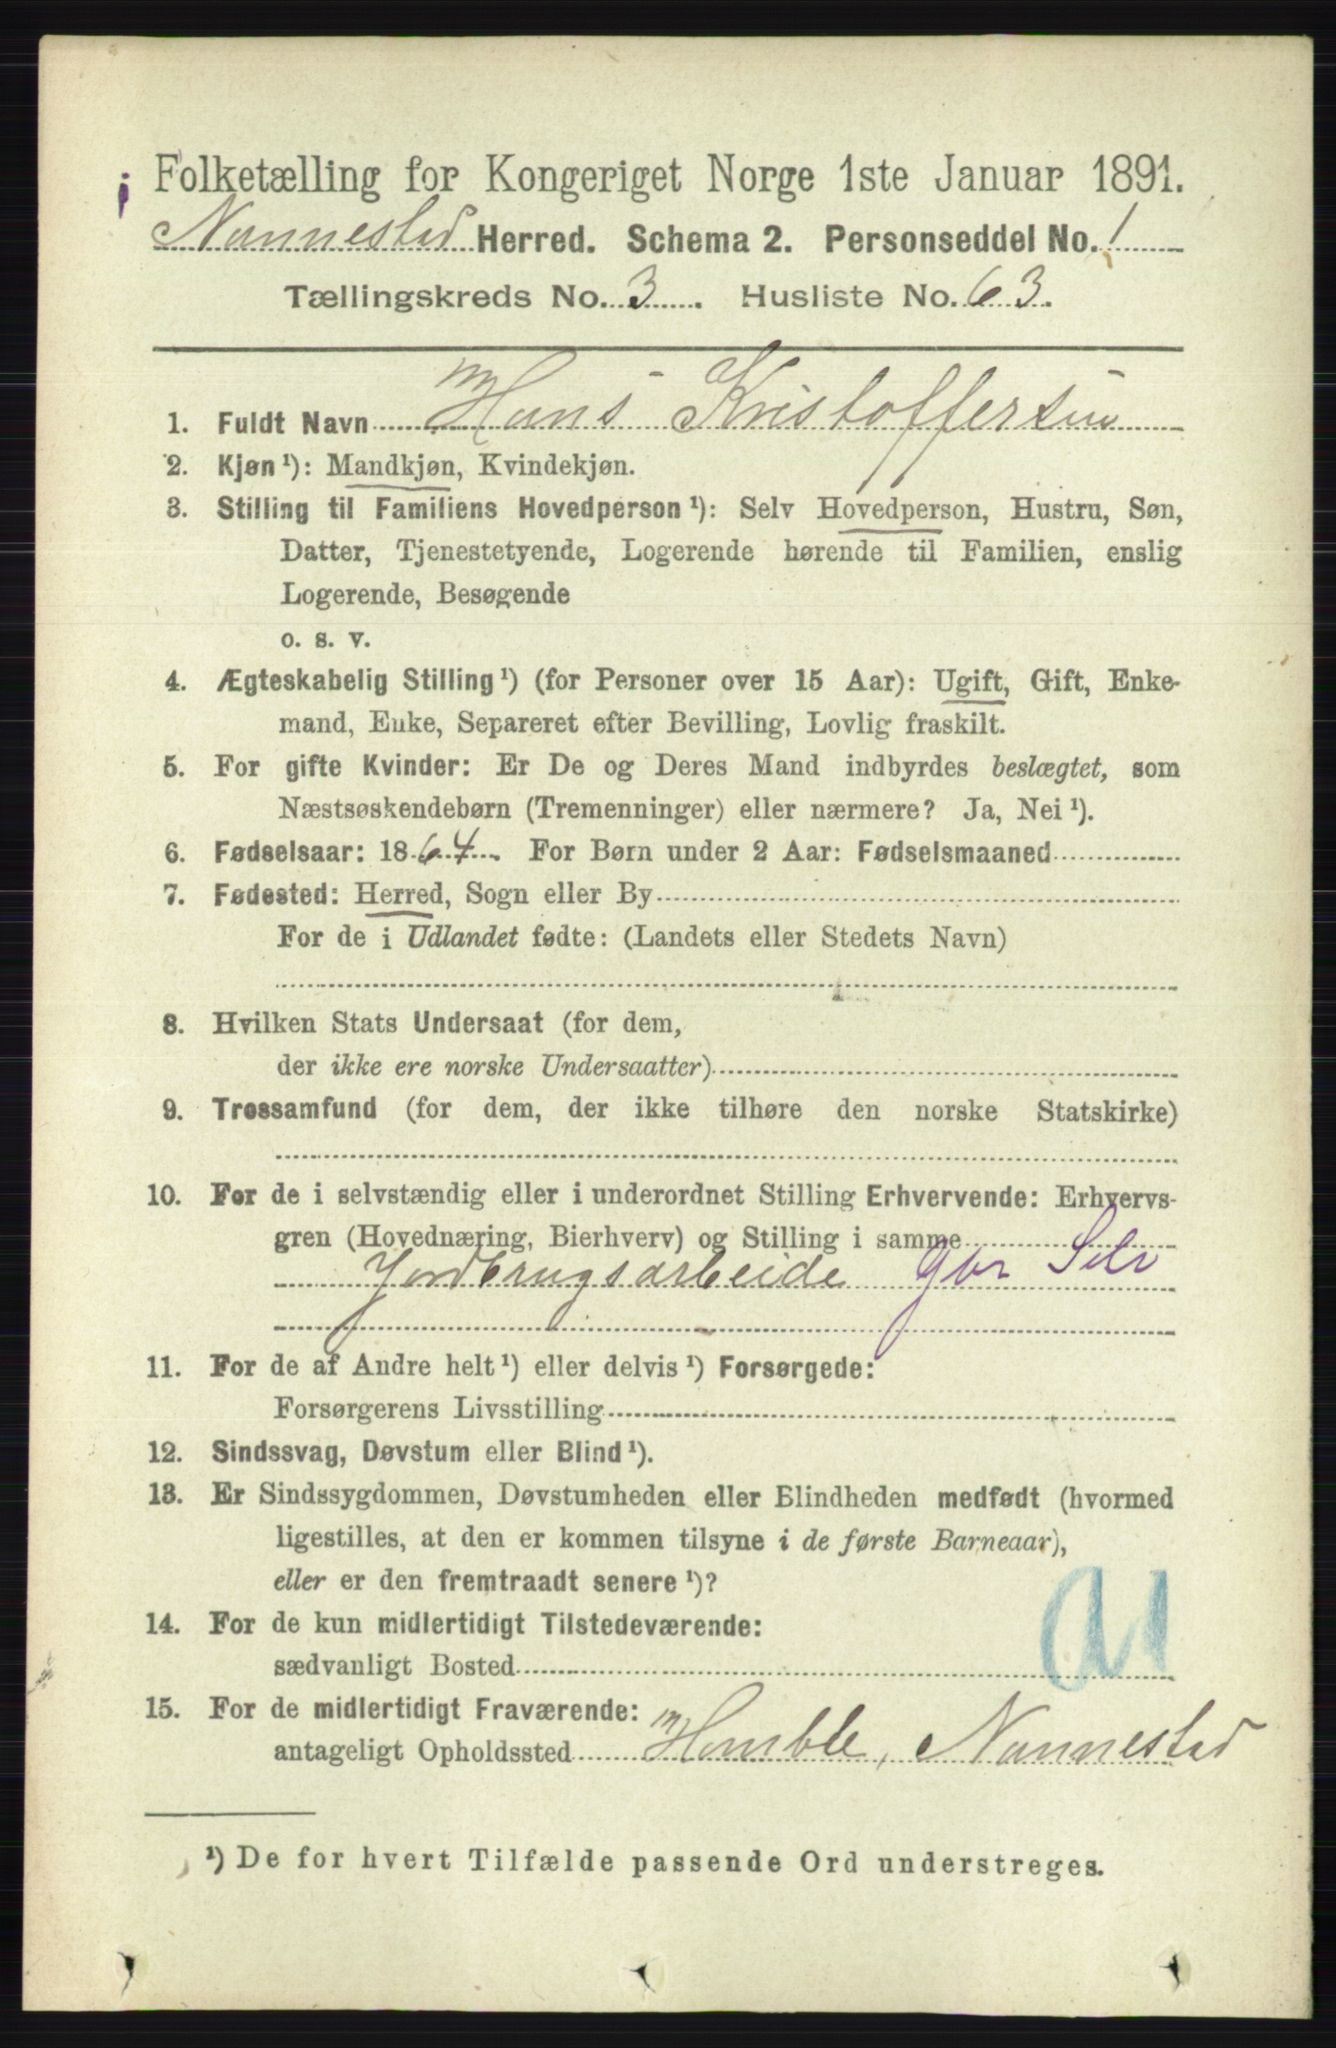 Folketælling for Kongeriget Norge 1ste Januar 1891.
Nannestad Herred. Schema 2. Personseddel No. 1
Tællingskreds No. 3. Husliste No. 63.
1. Fuldt Navn Hans Kristoffersen
2. Kjøn¹): Mandkjøn, Kvindekjøn.
3. Stilling til Familiens Hovedperson¹): Selv Hovedperson, Hustru, Søn,
Datter, Tjenestetyende, Logerende hørende til Familien, enslig
Logerende, Besøgende
o. s. v.
4. Ægteskabelig Stilling¹) (for Personer over 15 Aar): Ugift, Gift, Enke-
mand, Enke, Separeret efter Bevilling, Lovlig fraskilt.
5. For gifte Kvinder: Er De og Deres Mand indbyrdes beslægtet, som
Næstsøskendebørn (Tremenninger) eller nærmere? Ja, Nei¹).
6. Fødselsaar: 1864. For Børn under 2 Aar: Fødselsmaaned
7. Fødested: Herred, Sogn eller By
For de i Udlandet fødte: (Landets eller Stedets Navn)
8. Hvilken Stats Undersaat (for dem,
der ikke ere norske Undersaatter)
9. Trossamfund (for dem, der ikke tilhøre den norske Statskirke)
10. For de i selvstændig eller i underordnet Stilling Erhvervende: Erhvervs-
gren (Hovednæring, Bierhverv) og Stilling i samme
Jordbrugsarbeide gbr Selv
11. For de af Andre helt¹) eller delvis¹) Forsørgede:
Forsørgerens Livsstilling
12. Sindssvag, Døvstum eller Blind¹).
13. Er Sindssygdommen, Døvstumheden eller Blindheden medfødt (hvormed
ligestilles, at den er kommen tilsyne i de første Barneaar),
eller er den fremtraadt senere¹)?
14. For de kun midlertidigt Tilstedeværende:
sædvanligt Bosted
15. For de midlertidigt Fraværende:
antageligt Opholdssted Homble, Nannestad
¹) De for hvert Tilfælde passende Ord understreges.